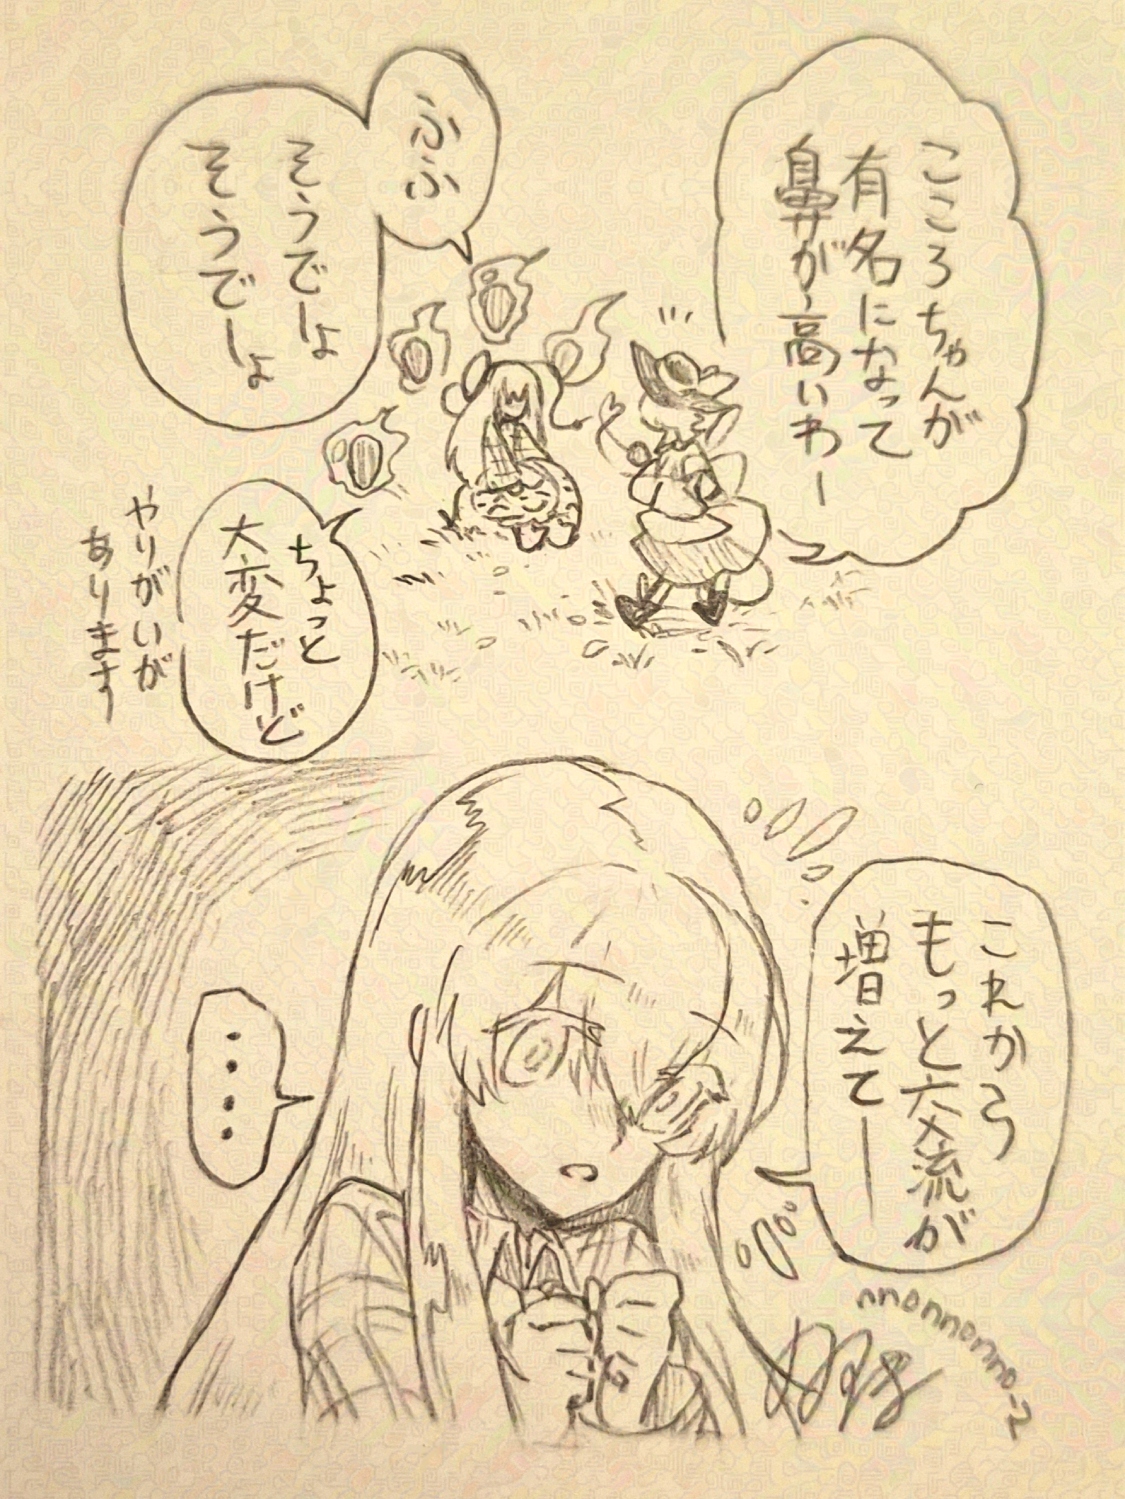 こころちゃんが
有名になって
鼻が高いわー
ふふ
そうでしょ
そうでしょ
ちょっと
大変だけど
やりがいが
あります
これから
もっと大流が
増えてー
・・・・
nnonnonno-2